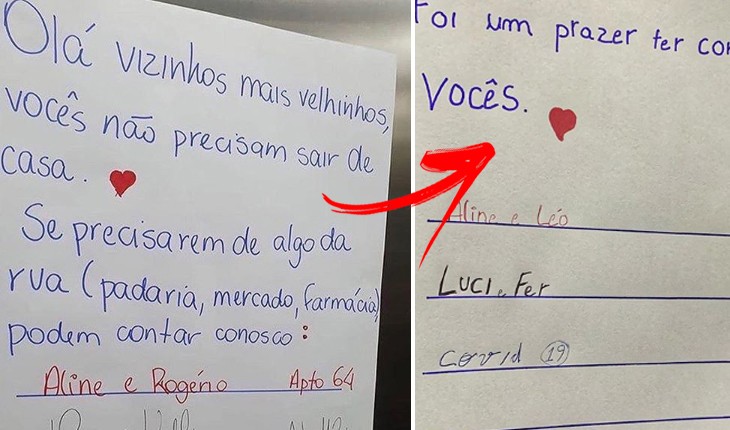 Olá vizinhos mais velhinhos,
vocês não precisam sair de
casa.
Se precisarem de algo da
rua (padaria, mercado, farmácia)
podem contar conosco:
Aline e Rogério Apto 64
Foi um prazer ter
Vocês.
Aline e Léo
LUCI e Fer
Covid 19